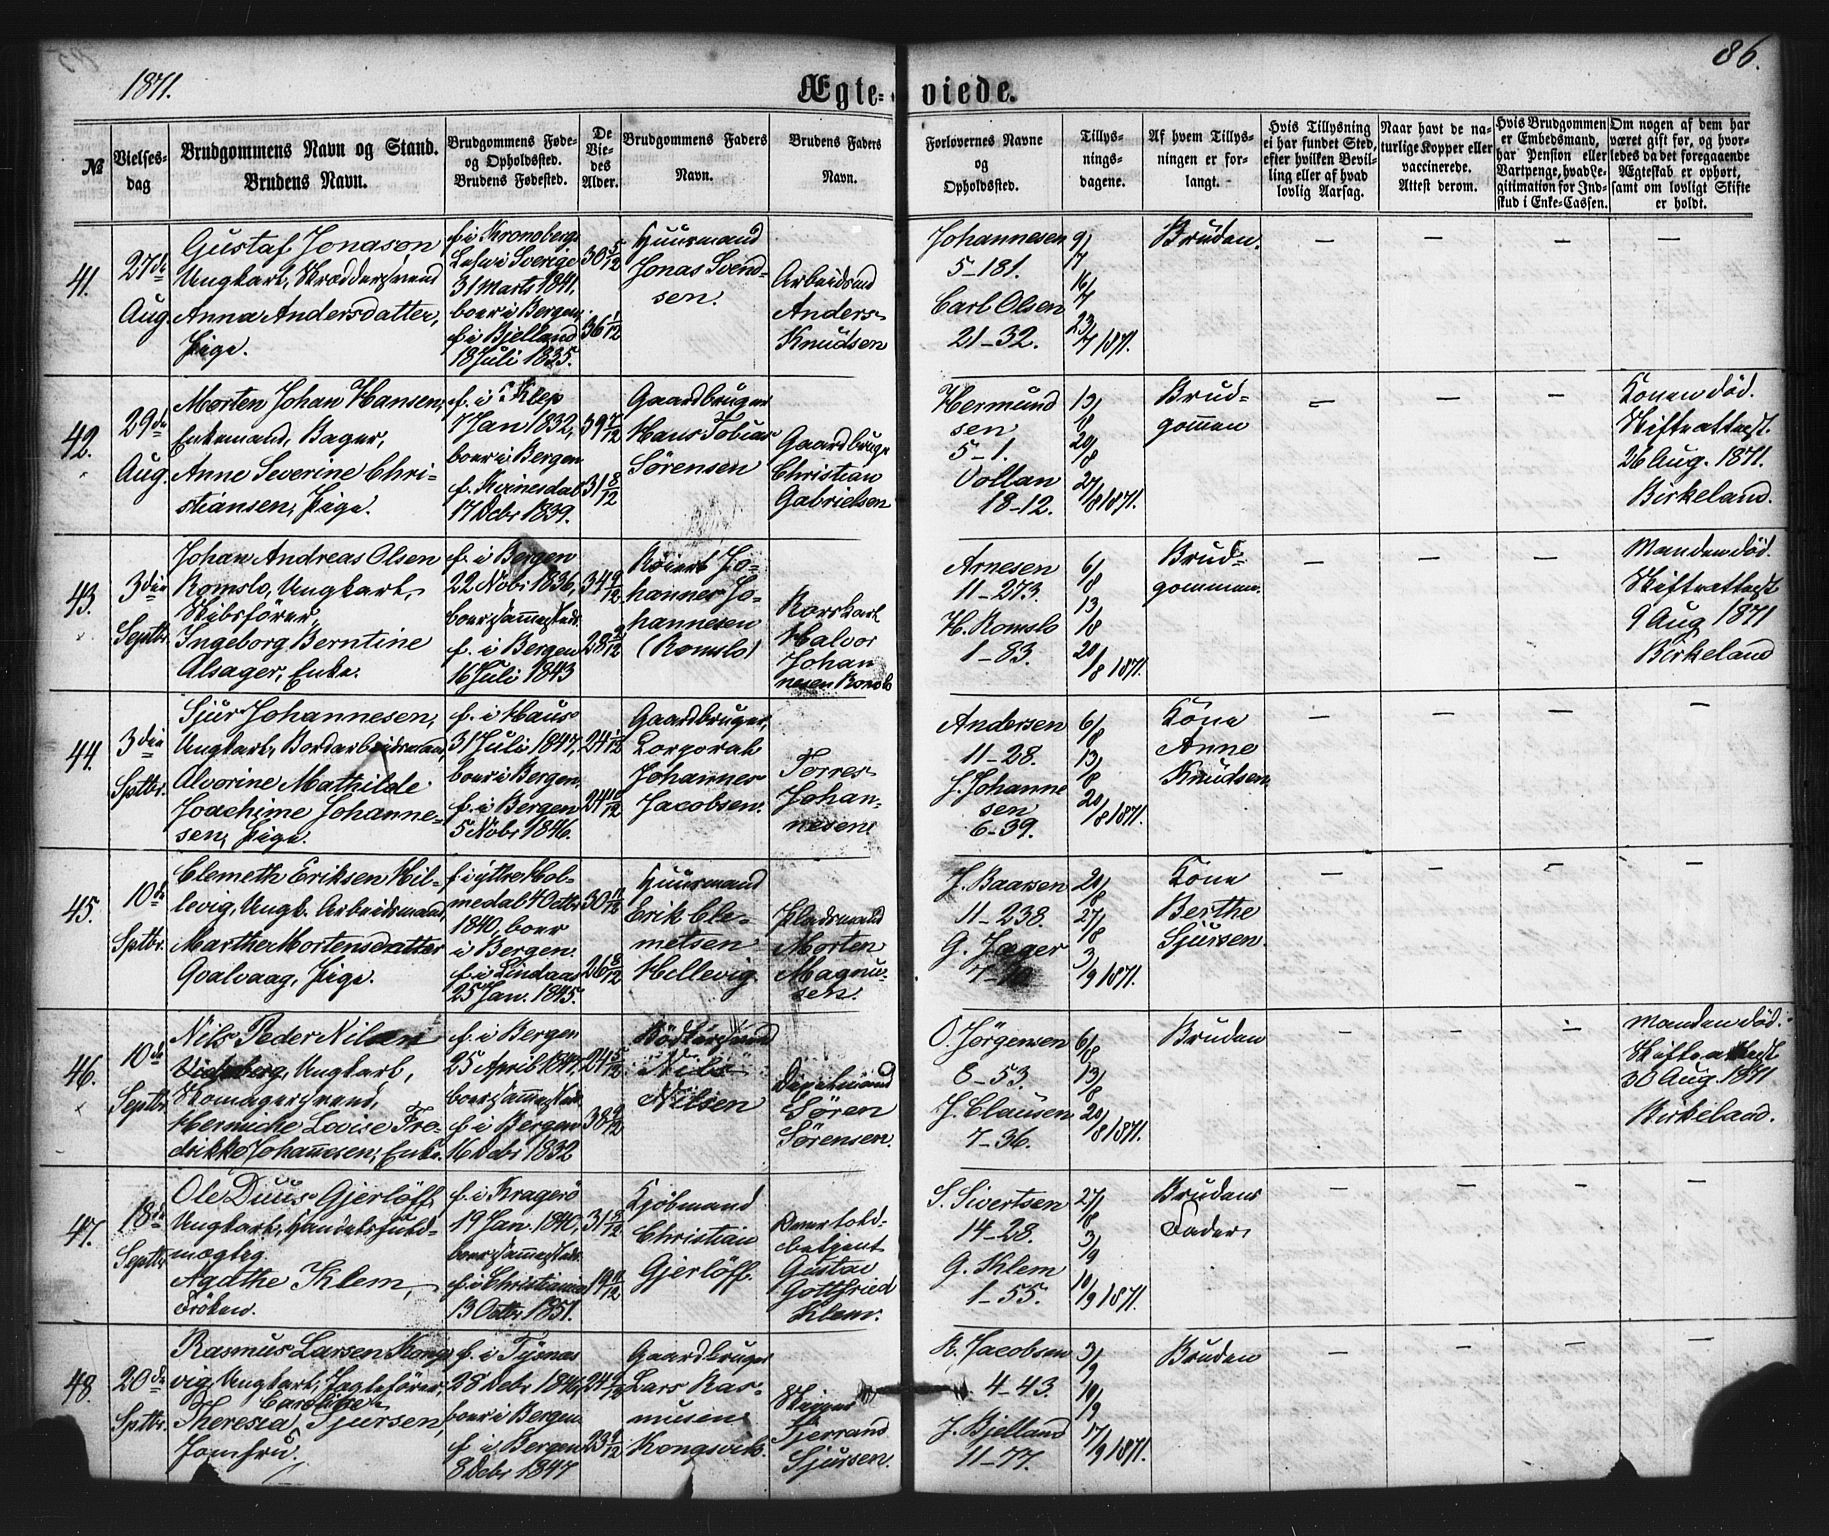 1871.
Ægte-viede.
86.
№
Vielses-
dag
Brudgommens Navn og Stand.
Brudens Navn.
Brudgommens Føde-
og Opholdssted.
Brudens Fødested.
De
Vie-
des
Alder.
Brudgommens Faders
Navn.
Brudens Faders
Navn.
Forlovernes Navne
og
Opholdssted.
Tillys-
nings-
dagene.
Af hvem Tillys-
ningen er for-
langt.
Hvis Tillysning
ei har fundet Sted,
efter hvilken Bevil-
ling eller af hvad
lovlig Aarsag.
Naar havt de na-
turlige Kopper eller
vaccinerede.
Attest derom.
Hvis Brudgommen
er Embedsmand,
har Pension eller
Vartpenge, hvad Le-
gitimation for Ind-
skud i Enke-Cassen.
Om nogen af dem har
været gift før, og hvor-
ledes da det foregaaende
Ægteskab er ophørt,
samt om lovligt Skifte
er holdt.
41.
27de
Aug.
Gustaf Jonason
Ungkarl, Skræddersvend
Anna Andersdatter,
Pige.
f. i Kronobergs
Lehn i Sverige
31 Marts 1841,
boer i Bergen,
f. i Bjelland
18 Juli 1835.
30 5/12
36 1/12
Huusmand
Jonas Svend-
sen.
Arbeidsmd
Anders
Knudsen
Johannesen
5-181.
Carl Olsen
21-32.
9/7
16/7
23/7 1871.
Bruden.
42.
29de
Aug.
Morten Johan Hansen,
Enkemand, Bager,
Anne Severine Chri-
stiansen, Pige.
f. i Klep
7 Jan 1832,
boer i Bergen
f. Kvinesdal
17 Debr 1839.
39 7/12
31 8/12
Gaardbruger
Hans Tobias
Sørensen
Gaardbruger
Christian
Gabrielsen
Hermund
sen
5-1.
Vollan
18-12.
13/8
20/8
27/8 1871.
Brud-
gommen
Konen død.
Skifteattest
26 Aug. 1871.
Birkeland.
43.
3die
Septbr.
Johan Andreas Olsen
Romslo, Ungkarl,
Skibsfører,
Ingeborg Berntine
Alsager, Enke.
f. i Bergen
22 Nobr 1836,
boer sammesteds
f. i Bergen
16 Juli 1843
34 9/12
28 2/12
Johannes Jo-
hannesen
(Romslo)
Halvor
Johan
nesen Romslo
Arnesen
11-273.
H. Romslo
1-83.
6/8
13/8
20/8 1871.
Brud-
gommen.
Manden død.
Skifteattest
9 Aug 1871
Birkeland
44.
3die
Sptbr.
Sjur Johannesen,
Ungkarl, Bordarbeidsmand,
Alvorine Mathilde
Joachime Johanne-
sen, Pige.
f. i Haus
31 Juli 1847,
boer i Bergen,
f. i Bergen
5 Nobr 1846.
24 1/12
24 10/12
Gaardbruger,
Corporal
Johannes
Jacobsen.
Torres
Johan-
nesen.
Andersen
11-28.
J. Johanne
sen
6-39.
6/8
13/8
20/8 1871.
Kone
Anne
Knudsen
45.
10de
Sptbr.
Clemeth Eriksen Hil-
levig, Ungk. Arbeidsmand,
Marthe Mortensdatter
Qvalvaag, Pige.
f. i ytre Hol-
medal 4 Octbr
1840, boer
i Bergen.
f. i Lindaas
25 Jan. 1845.
30 11/12
26 8/12
Huusmand
Erik Cle-
metsen
Hellevig
Pladsmand
Morten
Magnu-
sen.
J. Baarsen
11-238.
G. Jæger
20/8
27/8
3/9 1871.
Kone
Berthe
Sjursen.
46.
10de
Septbr
Nils Peder Nilsen
Ungkarl,
Skomagersvend,
Hermiche Lovise Fre-
drikke Johannesen, Enke.
f. i Bergen
25 April 1847,
boer sammesteds
f. i Bergen
16 Debr 1832
24 5/12
38 9/12
Bødkersvend
Nils
Nilsen
Søren
Sørensen.
O. Jørgensen
8-53.
J. Clausen
7-36.
6/8
13/8
20/8 1871.
Bruden
Manden død.
Skifteattest
30 Aug. 1871
Birkeland.
47.
18de
Septbr
Ole Duus Gjerløff,
Ungkarl, Handelsfuld-
mægtig
Agathe Klem,
Frøken.
f. i Kragerø
19 Jan. 1840,
boer sammesteds
f. i Christiania
13 Octbr 1851.
31 8/12
19 11/12
Kjøbmand
Christian
Gjerløff.
Overtold-
betjent
Gustav
Gottfried
Klem.
S. Sivertsen
14-28.
G. Klem
1-55.
27/8
3/9
10/9 1871.
Brudens
Fader
48.
20de
Sptbr.
Rasmus Larsen Kongs
vig, Ungkarl, Jagtefører,
Caroline
Theresea Sjursen,
Jomfru.
f. i Tysnæs
28 Debr 1846,
boer i Bergen
f. i Bergen
8 Debr 1847
24 9/12
23 9/12
Gaardbruger
Lars Ras-
musen
Kongsvik.
Skipper
Sjerrand
Sjursen.
R. Jacobsen
4-43.
J. Bjelland
11-77.
3/9
10/9
17/9 1871.
Bruden